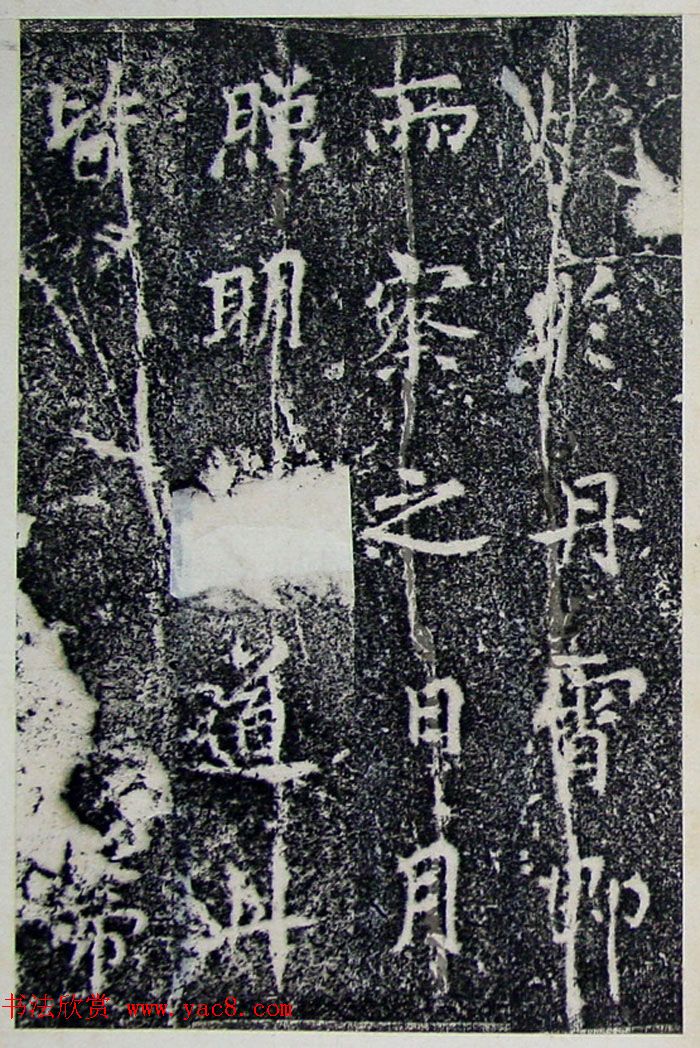 於丹霄仰
而察之日月
明道
皆帝
书法欣赏 www.yac8.com